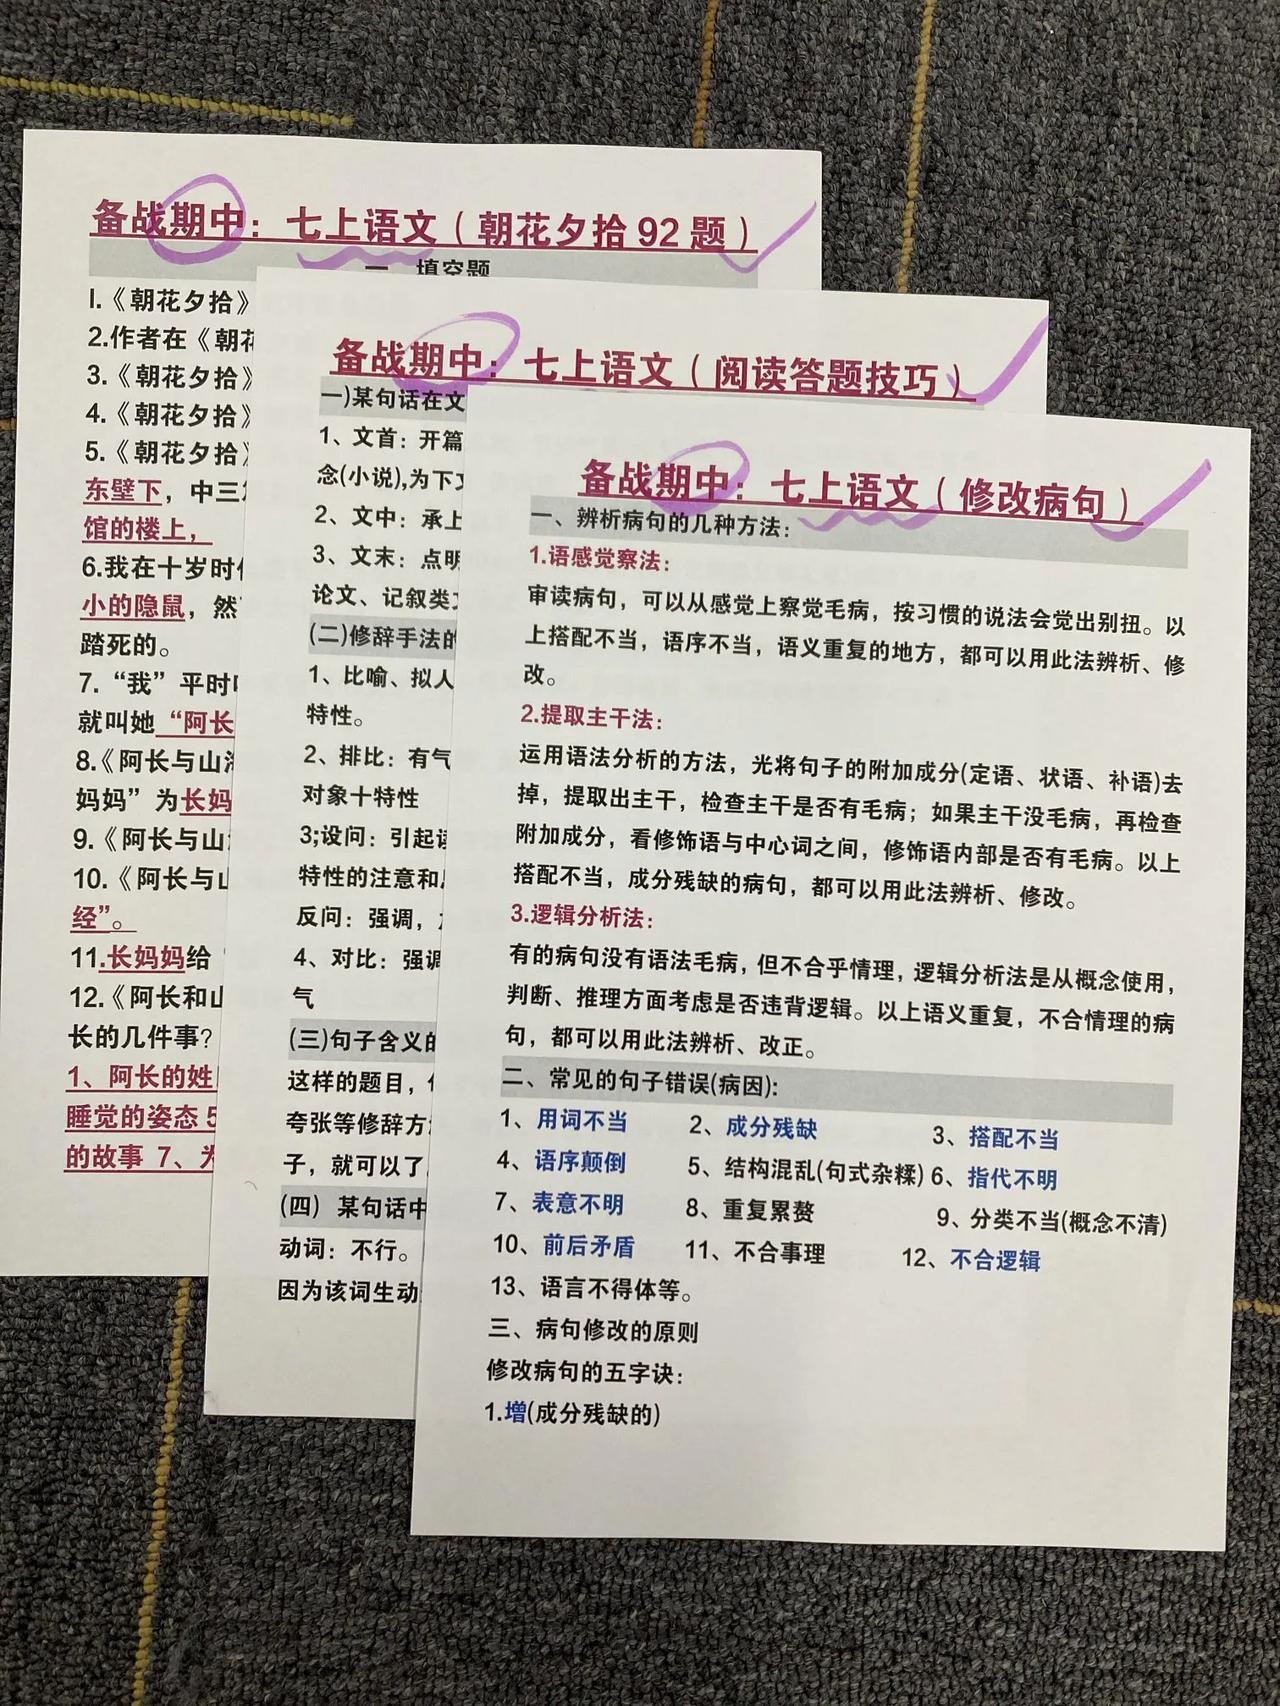 备战期中：七上语文（朝花夕拾92题）
一 填空题
1.《朝花夕拾》
2.作者在《朝花
3.《朝花夕拾》
4.《朝花夕拾》
5.《朝花夕拾》
东壁下，中三
馆的楼上，
6.我在十岁时
小的隐鼠，然
踏死的。
7.“我”平时
就叫她“阿长
8.《阿长与山海
妈妈”为长妈
9.《阿长与山
10.《阿长与山
经”。
11.长妈妈给
12.《阿长和山
长的几件事？
1、阿长的姓
睡觉的姿态 5
的故事 7、为
备战期中：七上语文（阅读答题技巧）
一)某句话在文
1、文首：开篇
念(小说),为下文
2、文中：承上
3、文末：点明
论文、记叙类文
(二)修辞手法的
1、比喻、拟人
特性。
2、排比：有气
对象十特性
3;设问：引起读
特性的注意和
反问：强调，
4、对比：强调
气
(三)句子含义的
这样的题目，
夸张等修辞方
子，就可以了
(四) 某句话中
动词：不行。
因为该词生动
备战期中：七上语文（修改病句）
一、辨析病句的几种方法：
1.语感觉察法：
审读病句，可以从感觉上察觉毛病，按习惯的说法会觉出别扭。以
上搭配不当，语序不当，语义重复的地方，都可以用此法辨析、修
改。
2.提取主干法：
运用语法分析的方法，光将句子的附加成分(定语、状语、补语)去
掉，提取出主干，检查主干是否有毛病；如果主干没毛病，再检查
附加成分，看修饰语与中心词之间，修饰语内部是否有毛病。以上
搭配不当，成分残缺的病句，都可以用此法辨析、修改。
3.逻辑分析法：
有的病句没有语法毛病，但不合乎情理，逻辑分析法是从概念使用，
判断、推理方面考虑是否违背逻辑。以上语义重复，不合情理的病
句，都可以用此法辨析、改正。
二、常见的句子错误(病因)：
1、用词不当 2、成分残缺 3、搭配不当
4、语序颠倒 5、结构混乱(句式杂糅) 6、指代不明
7、表意不明 8、重复累赘 9、分类不当(概念不清)
10、前后矛盾 11、不合事理 12、不合逻辑
13、语言不得体等。
三、病句修改的原则
修改病句的五字诀：
1.增(成分残缺的)